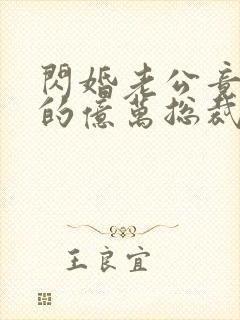 閃婚老公竟
的億萬總裁
王良宜